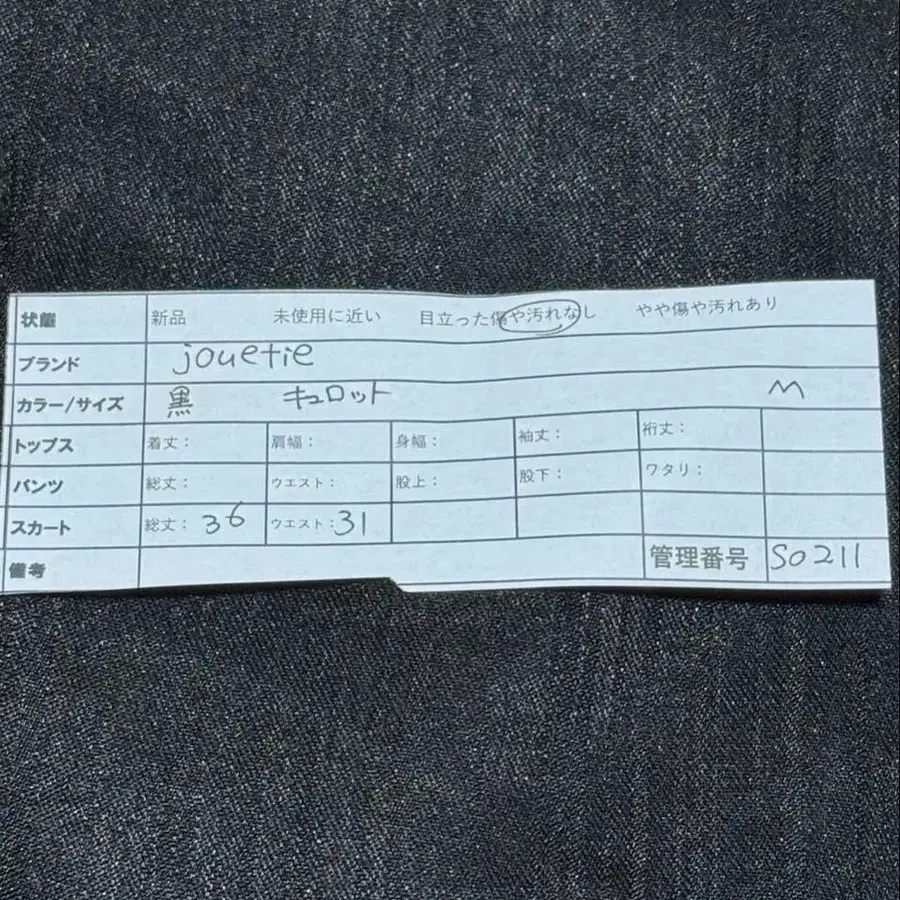 状態 新品 未使用に近い 目立った傷や汚れなし やや傷や汚れあり
ブランド jouetie
カラー/サイズ 黒 キュロット M
トップス 着丈： 肩幅： 身幅： 袖丈： 裄丈：
パンツ 総丈： ウエスト： 股上： 股下： ワタリ：
スカート 総丈：36 ウエスト：31
備考 管理番号 S0211